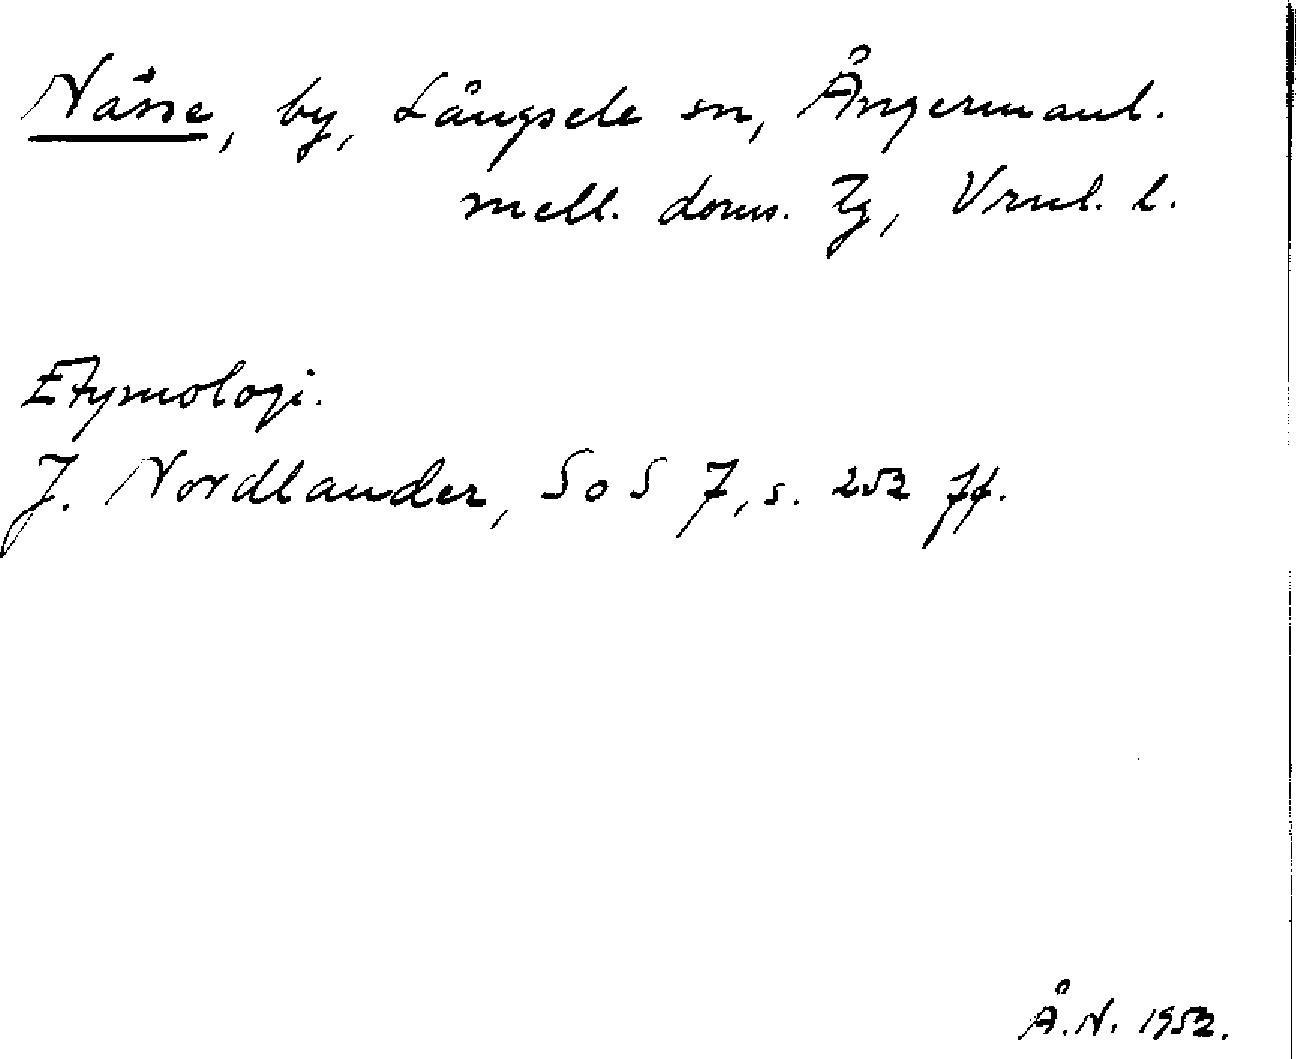 Nässe, by, Långsele sn, Ångermanl.
mell. doms. Tg, Vrnl. l.
Etymologi.
J. Nordlander, SoS 7, s. 252 ff.
Å.N. 1952.